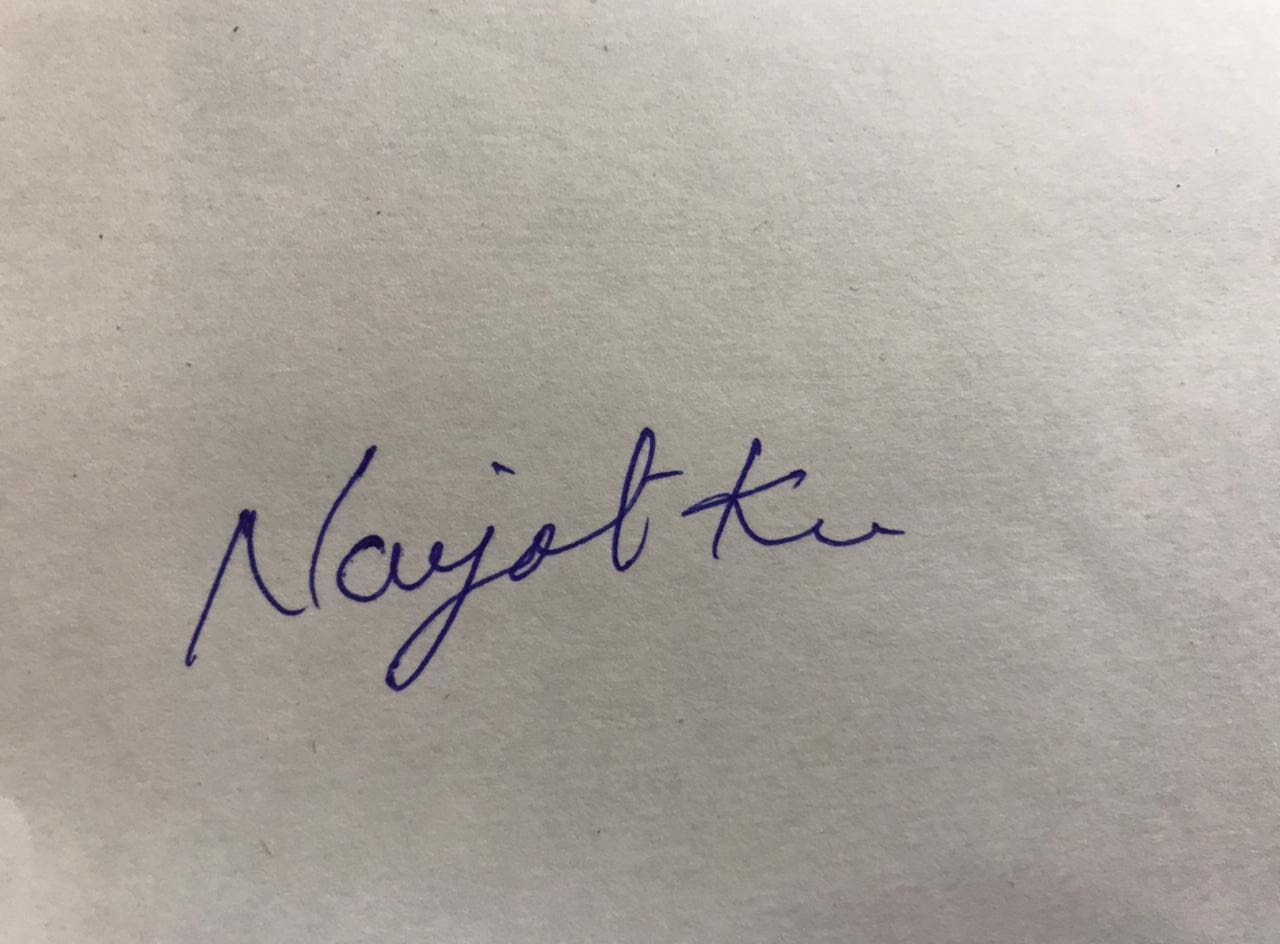 Navjot Ku